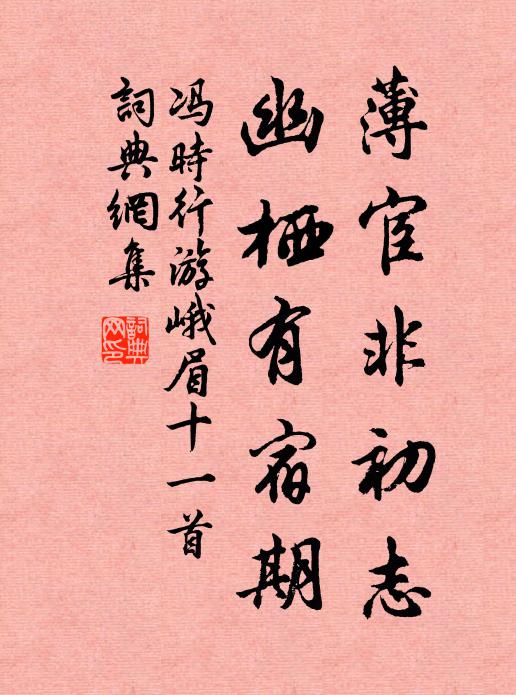 薄宦非初志
幽栖有宿期
冯時行游峨眉十一首
詞典網集
詞典網印